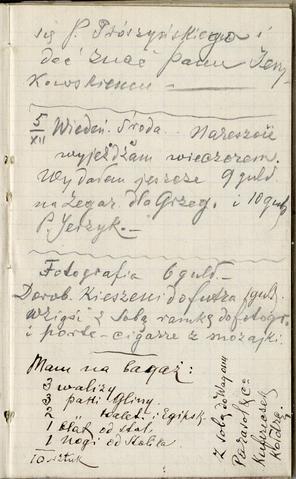 się P. Prószyńskiego i
dać znać Panu Jerzy-
kowskiemu
5/XII Wiedeń. Środa. Nareszcie
wyjeżdżam wieczorem.
Wydałem jeszcze 9 guld.
na zegar. dla Grzeg. i 10 guld
P. Jerzyk.—
Fotografia 6 guld—
Dorob. Kieszeni do futra 1 guld.
wziąść z sobą ramkę do fotogr.
i porte-cigarre z mozajki.
Mam na bagaż:
3 walizy
3 paki Gliny.
2 " Kalet. i Egipsk.
1 stół od stat.
1 nogi od Stolika
10 sztuk
Z sobą do Wagonu
Parasol &c=
Kuferasek
Kołdrę.